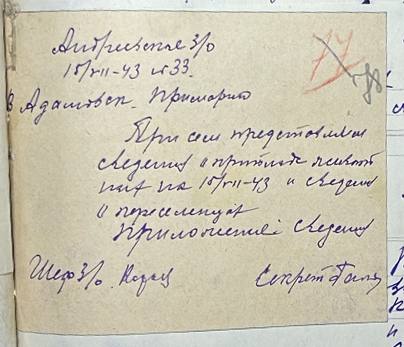 Андреевское З/о
15/VII-43 №33.
77
98
В Адамовск. Примарию
При сем представляем
сведения о приплоде
на 15/VII-43 и сведения
о переселенцах
Приложение: сведения
Шеф З/о. Секрет.